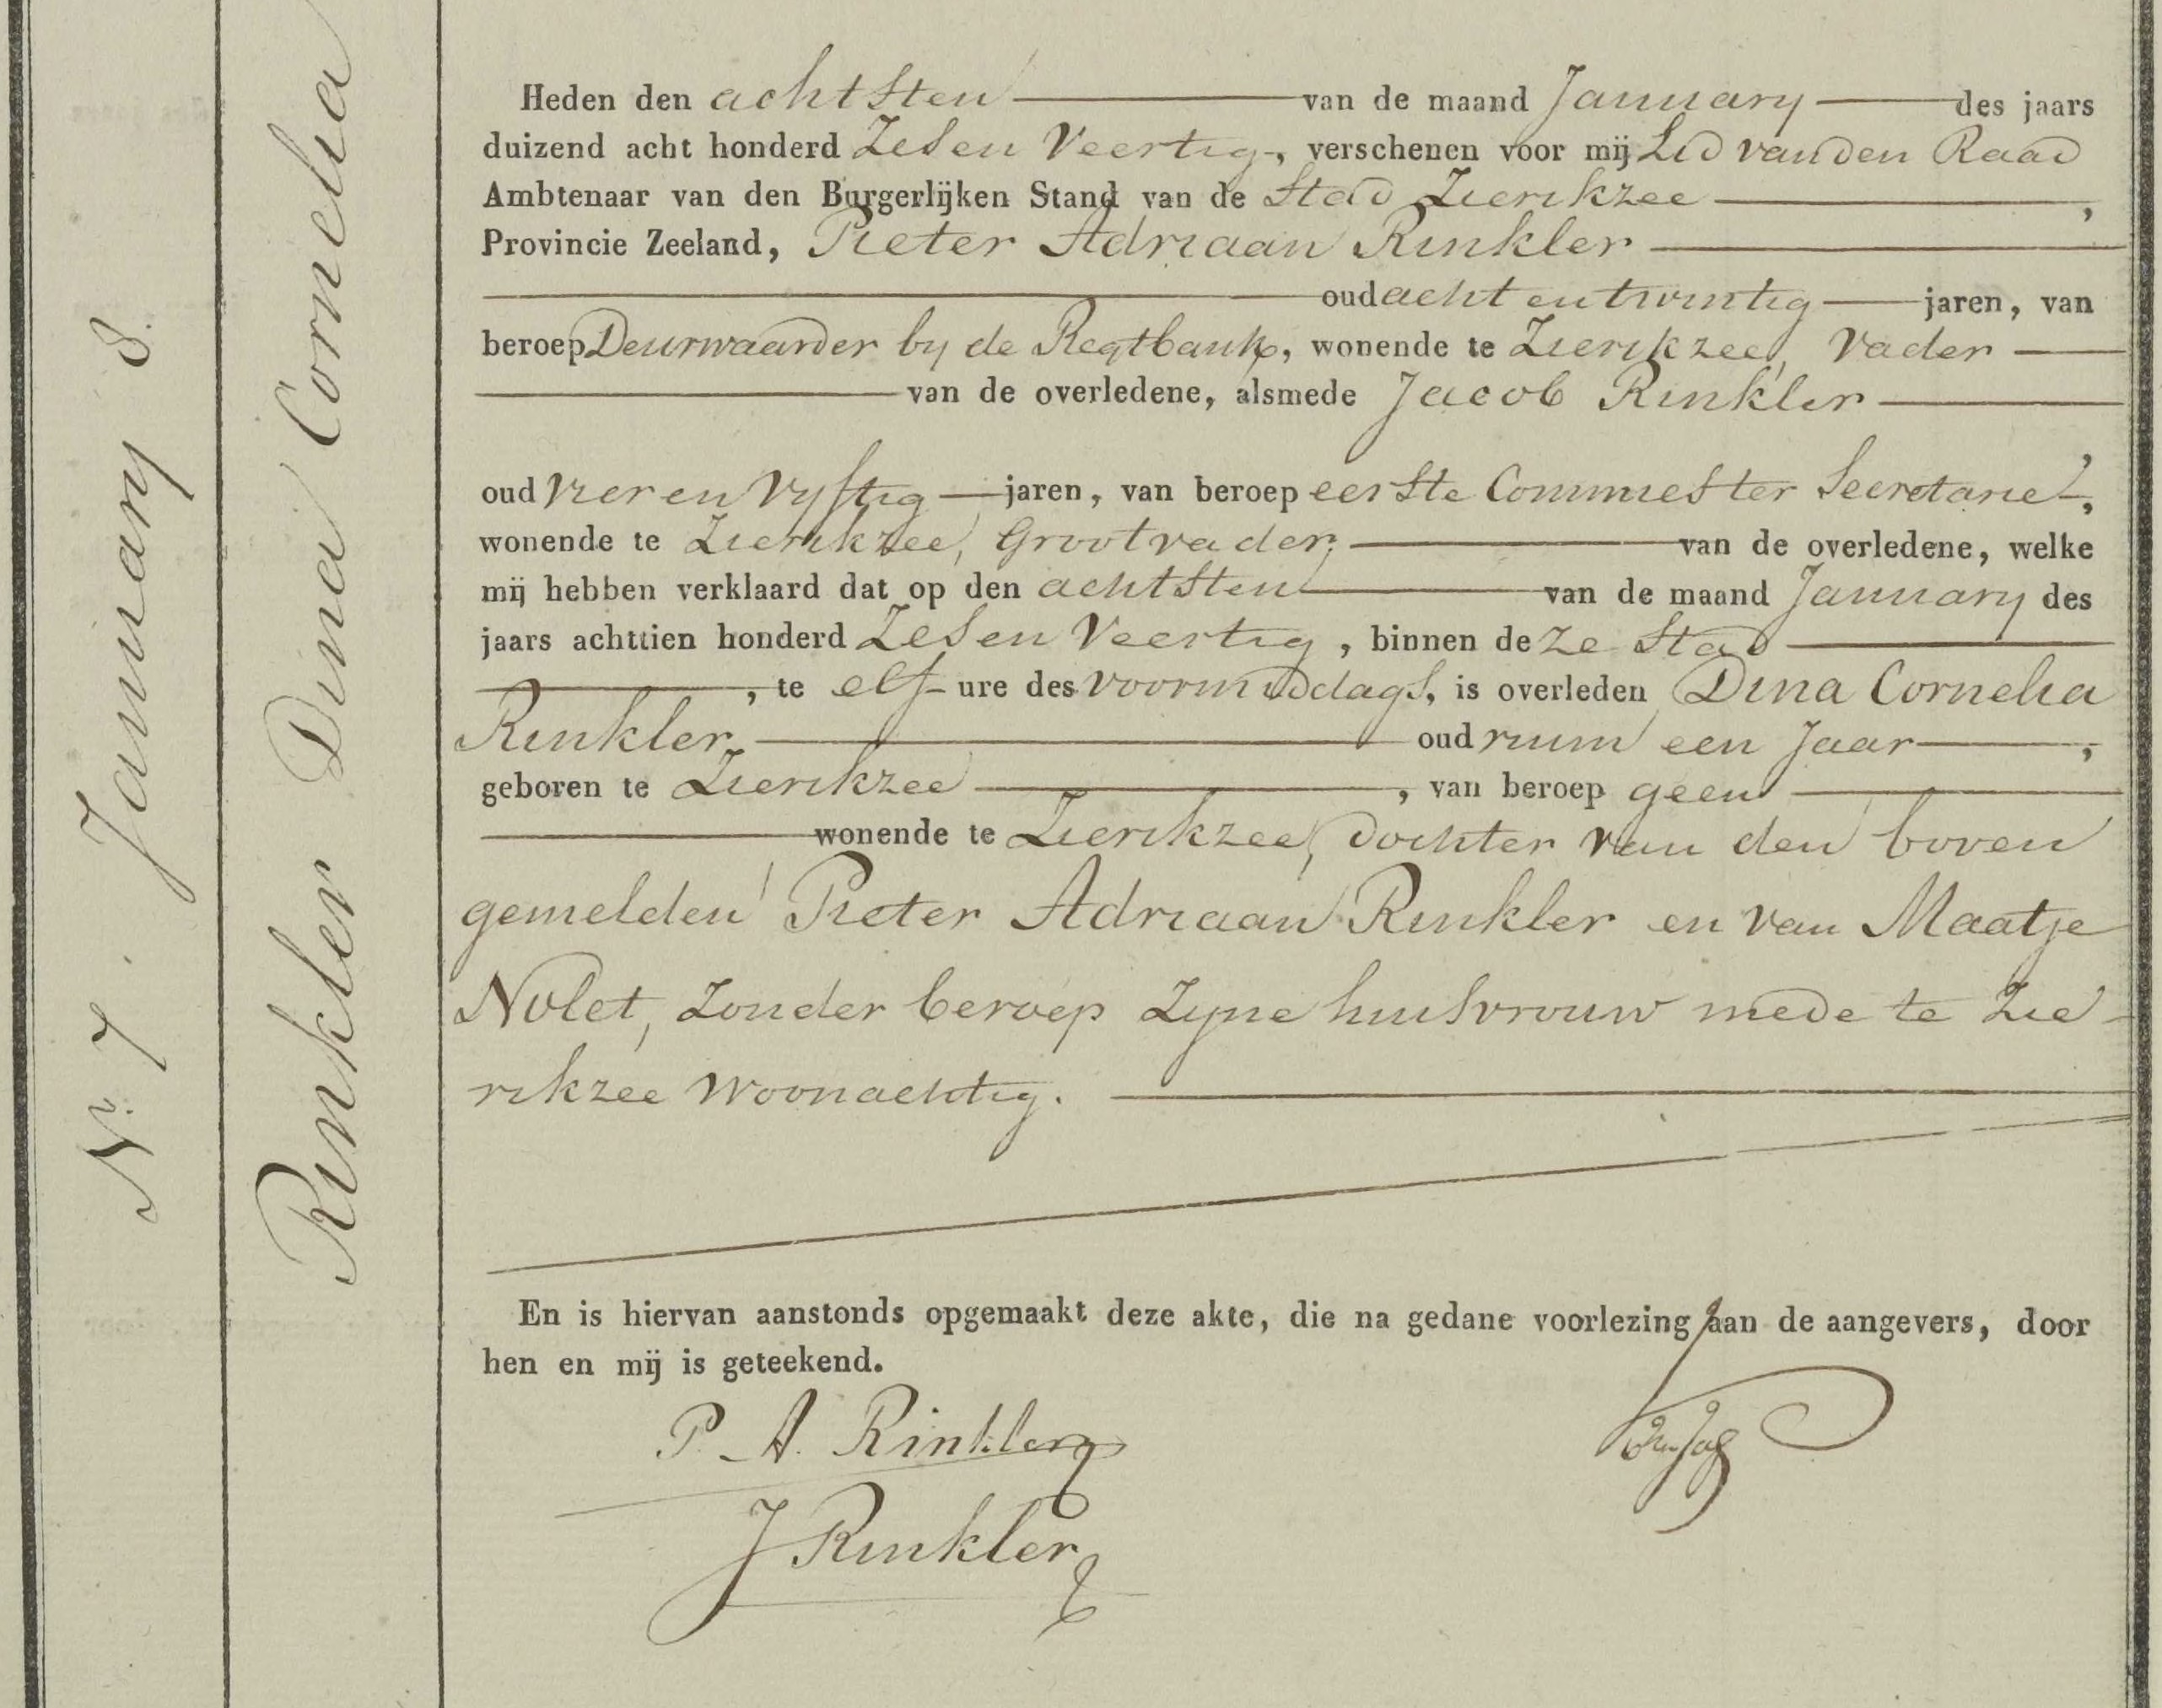 Nr. 7. January 8.
Rinkler Dina Cornelia
Heden den achtsten van de maand January des jaars
duizend acht honderd Zes en Veertig, verschenen voor mij Lid van den Raad
Ambtenaar van den Burgerlijken Stand van de Stad Zierikzee,
Provincie Zeeland, Pieter Adriaan Rinkler
oud acht en twintig jaren, van
beroep Deurwaarder by de Regtbank, wonende te Zierikzee, Vader
van de overledene, alsmede Jacob Rinkler,
oud vier en vyftig jaren, van beroep eerste Commies ter Secretarie,
wonende te Zierikzee, Grootvader van de overledene, welke
mij hebben verklaard dat op den achtsten van de maand January des
jaars achttien honderd Zes en Veertig, binnen deze Stad
, te elf ure des voormiddags, is overleden Dina Cornelia
Rinkler oud ruim een Jaar,
geboren te Zierikzee, van beroep geen
wonende te Zierikzee, dochter van den boven
gemelden Pieter Adriaan Rinkler en van Maatje
Nolet, zonder beroep zyne huisvrouw mede te Zie-
rikzee woonachtig.
En is hiervan aanstonds opgemaakt deze akte, die na gedane voorlezing aan de aangevers, door
hen en mij is geteekend.
P. A. Rinkler
J Rinkler